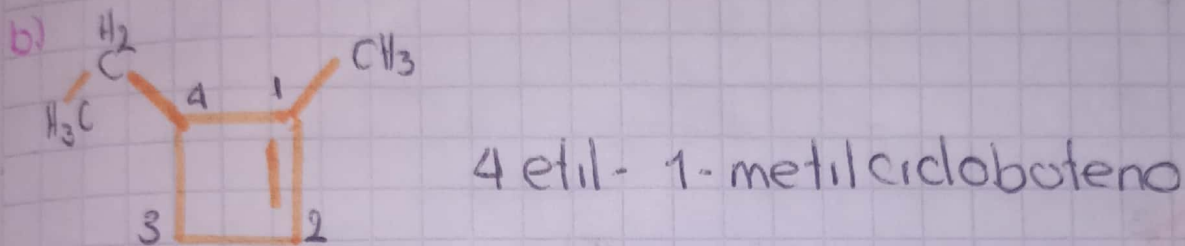 b)
H2
C
CH3
H3C
4
1
3
2
4 etil- 1-metilcicloboteno